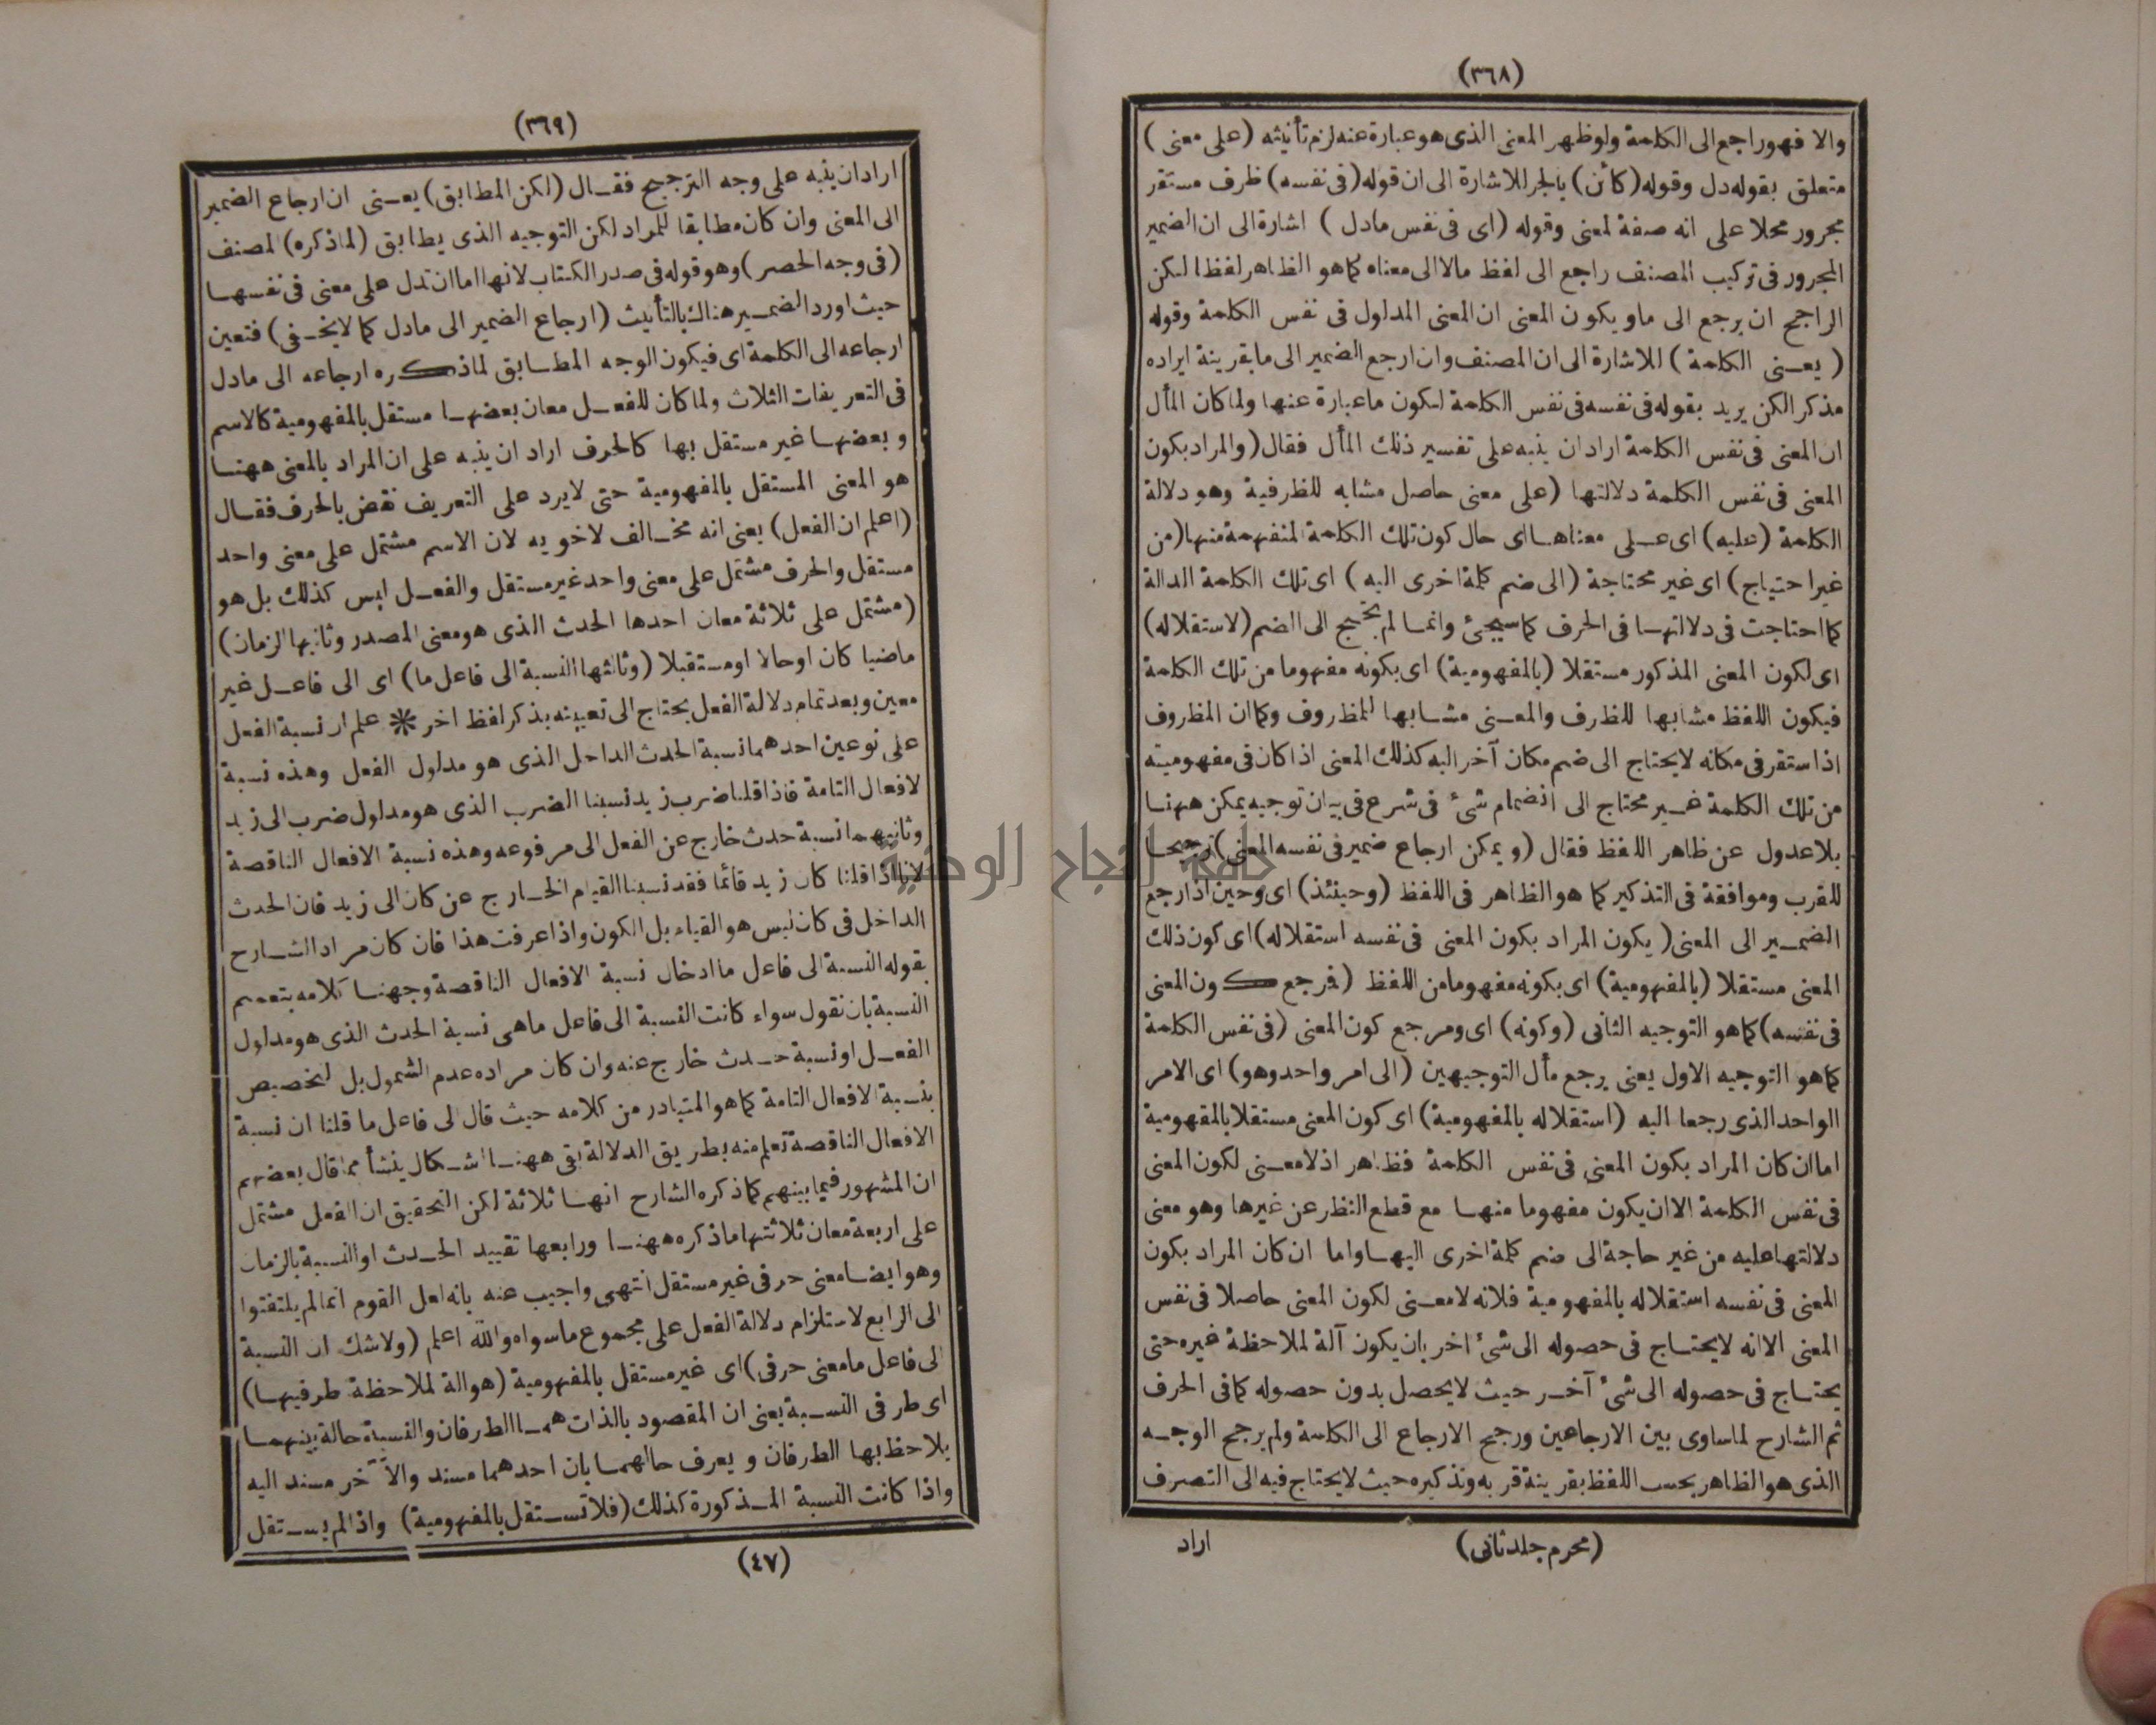 (٣٦٨)
والا فهوراجع الى الكلمة ولوظهر المعنى الذى هو عبارة عنه لزم تأنيثه (على معنى)
متعلق بقوله دل وقوله (كائن) بالجر للاشارة الى ان قوله (فى نفسه) ظرف مستقر
مجرور محلا على انه صفة لمعنى وقوله (اى فى نفس مادل) اشارة الى ان الضمير
المجرور فى تركيب المصنف راجع الى لفظ مالا الى معناه كما هو الظاهر لفظا لكن
الراجح ان يرجع الى ما ويكون المعنى ان المعنى المدلول فى نفس الكلمة وقوله
(يعنى الكلمة) للاشارة الى ان المصنف وان ارجع الضمير الى ما بقرينة ايراده
مذكرا لكن يريد بقوله فى نفسه فى نفس الكلمة لكون ما عبارة عنها ولما كان المأل
ان المعنى فى نفس الكلمة اراد ان ينبه على تفسير ذلك المأل فقال (والمراد بكون
المعنى فى نفس الكلمة دلالتها (على معنى حاصل مشابه للظرفية وهو دلالة
الكلمة (عليه) اى على معناها اى حال كون تلك الكلمة المنفهمة منها (من
غير احتياج) اى غير محتاجة (الى ضم كلمة اخرى اليه) اى تلك الكلمة الدالة
كما احتاجت فى دلالتها فى الحرف كما سيجئ وانما لم يحتج الى الضم (لاستقلاله)
اى لكون المعنى المذكور مستقلا (بالمفهومية) اى بكونه مفهوما من تلك الكلمة
فيكون اللفظ مشابها للظرف والمعنى مشابها للمظروف وكما ان المظروف
اذا ستقر فى مكانه لا يحتاج الى ضم مكان آخر اليه كذلك المعنى اذا كان فى مفهوميته
من تلك الكلمة غير محتاج الى انضمام شئ فى شرع فى بيان توجيه يمكن ههنا
بلا عدول عن ظاهر اللفظ فقال (ويمكن ارجاع ضمير فى نفسه المعنى) ترجيحا
للقرب وموافقة فى التذكير كما هو الظاهر فى اللفظ (وحينئذ) اى وحين اذا رجع
الضمير الى المعنى (يكون المراد بكون المعنى فى نفسه استقلاله) اى كون ذلك
المعنى مستقلا (بالمفهومية) اى بكونه مفهوما من اللفظ (فرجع كون المعنى
فى نفسه) كما هو التوجيه الثانى (وكونه) اى ومرجع كون المعنى (فى نفس الكلمة
كما هو التوجيه الاول يعنى يرجع مأل التوجيهين (الى امر واحد وهو) اى الامر
الواحد الذى رجعا اليه (استقلاله بالمفهومية) اى كون المعنى مستقلا بالمفهومية
اما ان كان المراد بكون المعنى فى نفس الكلمة فظاهر اذ لا معنى لكون المعنى
فى نفس الكلمة الا ان يكون مفهوما منها مع قطع النظر عن غيرها وهو معنى
دلالتها عليه من غير حاجة الى ضم كلمة اخرى اليها واما ان كان المراد بكون
المعنى فى نفسه استقلاله بالمفهومية فلانه لا معنى لكون المعنى حاصلا فى نفس
المعنى الا انه لا يحتاج فى حصوله الى شئ اخر بان يكون آلة لملاحظة غيره حتى
يحتاج فى حصوله الى شئ آخر حيث لا يحصل بدون حصوله كما فى الحرف
ثم الشارح لما ساوى بين الارجاعين ورجح الارجاع الى الكلمة ولم يرجح الوجه
الذى هو الظاهر بحسب اللفظ بقرينة قربه وتذكيره حيث لا يحتاج فيه الى التصرف
(محرم جلد ثانى)
اراد
(٣٦٩)
اراد ان ينبه على وجه الترجيح فقال (لكن المطابق) يعنى ان ارجاع الضمير
الى المعنى وان كان مطابقا للمراد لكن التوجيه الذى يطابق (لما ذكره) المصنف
(فى وجه الحصر) وهو قوله فى صدر الكتاب لانها اما ان تدل على معنى فى نفسها
حيث اورد الضمير هناك بالتأنيث (ارجاع الضمير الى مادل كما لا يخفى) فتعين
ارجاعه الى الكلمة اى فيكون الوجه المطابق لما ذكره ارجاعه الى مادل
فى التعريفات الثلاث ولما كان للفعل معان بعضها مستقل بالمفهومية كالاسم
وبعضها غير مستقل بها كالحرف اراد ان ينبه على ان المراد بالمعنى ههنا
هو المعنى المستقل بالمفهومية حتى لا يرد على التعريف نقض بالحرف فقال
(اعلم ان الفعل) يعنى انه مخالف لاخويه لان الاسم مشتمل على معنى واحد
مستقل والحرف مشتمل على معنى واحد غير مستقل والفعل ليس كذلك بل هو
(مشتمل على ثلاثة معان احدها الحدث الذى هو معنى المصدر وثانيها الزمان)
ماضيا كان او حالا او مستقبلا (وثالثها النسبة الى فاعل ما) اى الى فاعل غير
معين وبعد تمام دلالة الفعل يحتاج الى تعيينه بذكر لفظ اخر * علم ان نسبة الفعل
على نوعين احدهما نسبة الحدث الداخل الذى هو مدلول الفعل وهذه نسبة
لافعال التامة فاذا قلنا ضرب زيد نسبنا الضرب الذى هو مدلول ضرب الى زيد
وثانيهما نسبة حدث خارج عن الفعل الى مرفوعه وهذه نسبة الافعال الناقصة
لانا اذا قلنا كان زيد قائما فقد نسبنا القيام الخارج عن كان الى زيد فان الحدث
الداخل فى كان ليس هو القيام بل الكون واذا عرفت هذا فان كان مراد الشارح
بقوله النسبة الى فاعل ما ادخال نسبة الافعال الناقصة وجهنا كلامه بتعميم
النسبة بان نقول سواء كانت النسبة الى فاعل ما هى نسبة الحدث الذى هو مدلول
الفعل او نسبة حدث خارج عنه وان كان مراده عدم الشمول بل لتخصيص
بنسبة الافعال التامة كما هو المتبادر من كلامه حيث قال لى فاعل ما قلنا ان نسبة
الافعال الناقصة تعلم منه بطريق الدلالة بقى ههنا اشكال ينشأ مما قال بعضهم
ان المشهور فيما بينهم كما ذكره الشارح انها ثلاثة لكن التحقيق ان الفعل مشتمل
على اربعة معان ثلاثتها ما ذكره ههنا ورابعها تقييد الحدث او النسبة بالزمان
وهو ايضا معنى حرفى غير مستقل انتهى واجيب عنه بانه لعل القوم انما لم يلتفتوا
الى الرابع لاستلزام دلالة الفعل على مجموع ماسواه والله اعلم (ولا شك ان النسبة
الى فاعل ما معنى حرفى) اى غير مستقل بالمفهومية (هو الة لملاحظة طرفيها)
اى طرفى النسبة يعنى ان المقصود بالذات هما الطرفان والنسبة حالة بينهما
يلاحظ بها الطرفان ويعرف حالهما بان احدهما مسند والآخر مسند اليه
واذا كانت النسبة المذكورة كذلك (فلا تستقل بالمفهومية) واذا لم يستقل
(٤٧)
جامعة النجاح الوطنية